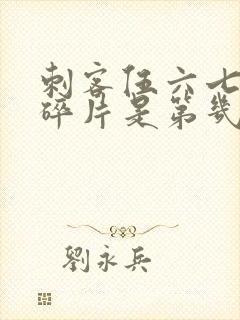 刺客伍六七
碎片是第几
劉永兵